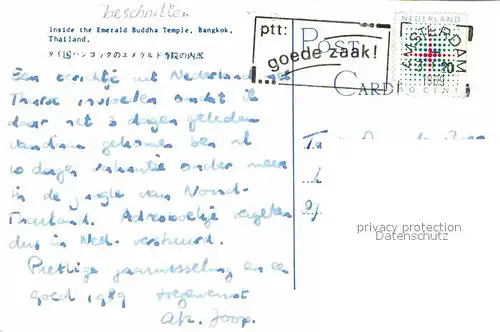 beschnitten
Inside the Emerald Buddha Temple, Bangkok,
Thailand.
タイ国バンコックのエメラルド寺院の内部
ptt:
goede zaak!
POST
CARD
NEDERLAND
AMSTERDAM
50 CENT
Een berichtje uit Nederland met
Thaise invloeden omdat ik
daar net 3 dagen geleden
vandaan gekomen ben na
10 dagen vakantie onder meer
in de jungle van Noord-
Thailand. Adresboekje vergeten
dus in Ned. verstuurd.
Prettige jaarwisseling en een
goed 1989 toegewenst
Joop.
privacy protection
Datenschutz